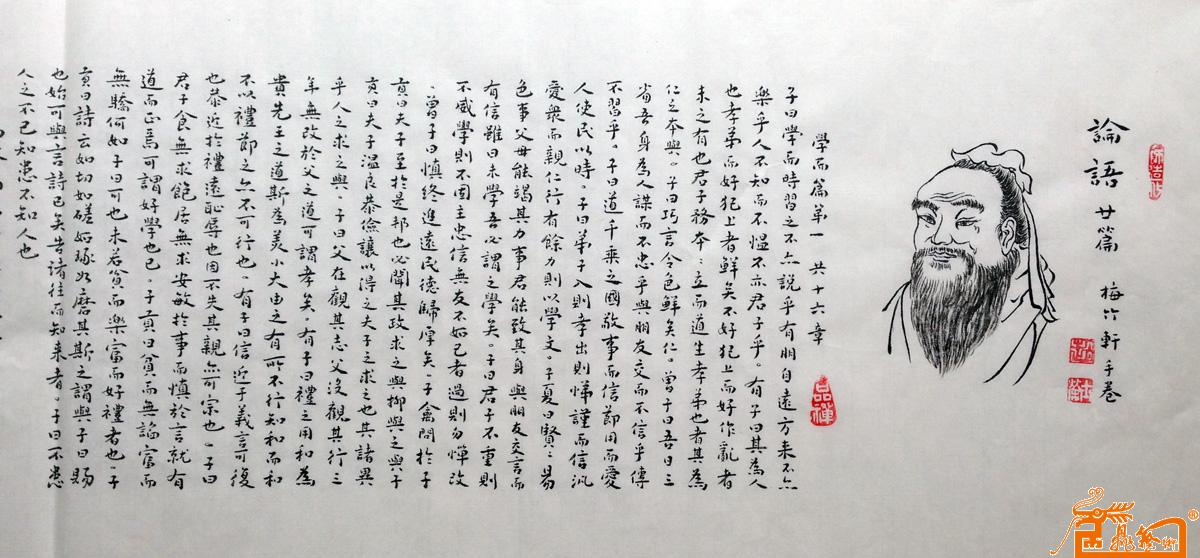 論語廿篇 梅竹軒手卷
學而篇第一 共十六章
品禪
子曰學而時習之不亦說乎有朋自遠方來不亦
樂乎人不知而不慍不亦君子乎。有子曰其為人
也孝弟而好犯上者鮮矣不好犯上而好作亂者
未之有也君子務本：立而道生孝弟也者其為
仁之本與。子曰巧言令色鮮矣仁。曾子曰吾日三
省吾身為人謀而不忠乎與朋友交而不信乎傳
不習乎。子曰道千乘之國敬事而信節用而愛
人使民以時。子曰弟子入則孝出則悌謹而信汎
愛衆而親仁行有餘力則以學文。子夏曰賢：易
色事父母能竭其力事君能致其身與朋友交言而
有信雖曰未學吾必謂之學矣。子曰君子不重則
不威學則不固主忠信無友不如己者過則勿憚改
。曾子曰慎終追遠民德歸厚矣。子禽問於子
貢曰夫子至於是邦也必聞其政求之與抑與之與子
貢曰夫子溫良恭儉讓以得之夫子之求之也其諸異
乎人之求之與。子曰父在觀其志父沒觀其行三
年無改於父之道可謂孝矣。有子曰禮之用和為
貴先王之道斯為美小大由之有所不行知和而和
不以禮節之亦不可行也。有子曰信近于義言可復
也恭近於禮遠恥辱也因不失其親亦可宗也。子曰
君子食無求飽居無求安敏於事而慎於言就有
道而正焉可謂好學也已。子貢曰貧而無諂富而
無驕何如子曰可也未若貧而樂富而好禮者也。子
貢曰詩云如切如磋如琢如磨其斯之謂與子曰賜
也始可與言詩已矣告諸往而知來者。子曰不患
人之不己知患不知人也